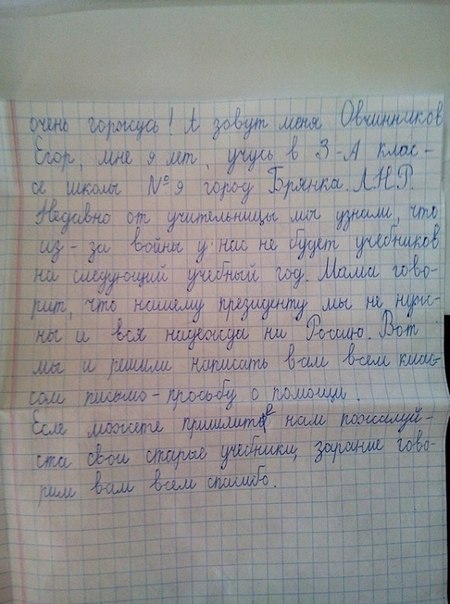 очень горжусь! А зовут меня Овчинников
Егор, мне 9 лет, учусь в 3-А клас-
се школы №9 город Брянка ЛНР.
Недавно от учительницы мы узнали, что
из-за войны у нас не будет учебников
на следующий учебный год. Мама гово-
рит, что нашему президенту мы не нуж-
ны и вся надежда на Россию. Вот
мы и решили написать вам всем клас-
сом письмо-просьбу о помощи.
Если можете пришлите нам пожалуй-
ста свои старые учебники, зарание гово-
рим вам всем спасибо.